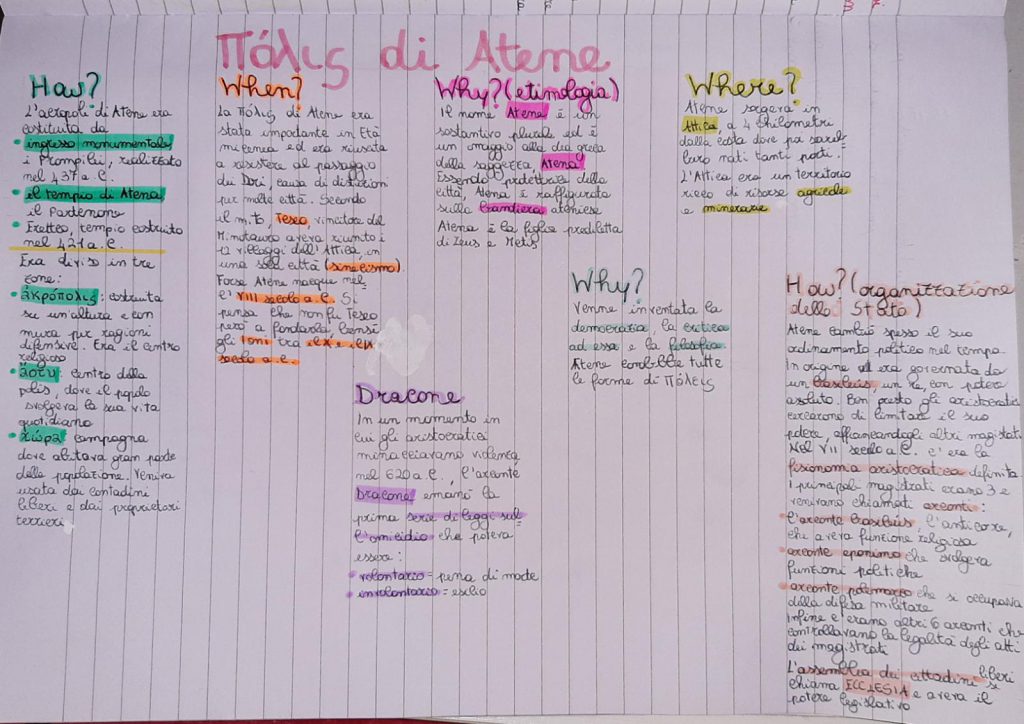 Πόλις di Atene
How?
L'acropoli di Atene era
costituita da
• ingresso monumentale
i Propilei, realizzato
nel 437 a.C.
• il tempio di Atena,
il Partenone
• Eretteo, tempio costruito
nel 421 a.C.
Era diviso in tre
zone:
• ἀκρόπολις: costruita
su un'altura e con
mura per ragioni
difensive. Era il centro
religioso
• ἄστυ: centro della
polis, dove il popolo
svolgeva la sua vita
quotidiana
• χώρα: campagna
dove abitava gran parte
della popolazione. Veniva
usata dai contadini
liberi e dai proprietari
terrieri
When?
La πόλις di Atene era
stata importante in Età
micenea ed era riuscita
a resistere al passaggio
dei Dori, causa di distruzioni
per molte città. Secondo
il mito, Teseo, vincitore del
Minotauro aveva riunito i
12 villaggi dell'Attica, in
una sola città (sinecismo).
Forse Atene nacque nel-
l'VIII secolo a.C. Si
pensa che non fu Teseo
però a fondarla, bensì
gli Ioni tra il X e il IX
secolo a.C.
Why? (etimologia)
Il nome Atene è un
sostantivo plurale ed è
un omaggio alla dea greca
della saggezza, Atena.
Essendo protettrice della
città, Atena è raffigurata
sulla bandiera ateniese
Atena è la figlia prediletta
di Zeus e Metis
Where?
Atene sorgeva in
Attica, a 4 chilometri
dalla costa dove poi sareb-
bero nati tanti porti.
L'Attica era un territorio
ricco di risorse agricole
e minerarie
Why?
Venne inventata la
democrazia, la critica
ad essa e la filosofia.
Atene ebbe tutte
le forme di πόλεις
Dracone
In un momento in
cui gli aristocratici
minacciavano violenza
nel 620 a.C., l'arconte
Dracone emanò la
prima serie di leggi sul-
l'omicidio che poteva
essere:
• volontario = pena di morte
• involontario = esilio
How? (organizzazione
dello Stato)
Atene cambiò spesso il suo
ordinamento politico nel tempo.
In origine era governata da
un basileus, un re, con potere
assoluto. Ben presto gli aristocratici
cercarono di limitare il suo
potere, affiancandogli altri magistrati
Nel VII secolo a.C. c'era la
fisionomia aristocratica definita
I principali magistrati erano 3 e
venivano chiamati arconti:
l'arconte basileus, l'antico re,
che aveva funzione religiosa
• arconte eponimo che svolgeva
funzioni politiche
• arconte polemarco che si occupava
della difesa militare
Infine c'erano altri 6 arconti che
controllavano la legalità degli atti
dei magistrati
L'assemblea dei cittadini liberi si
chiama ECCLESIA e aveva il
potere legislativo